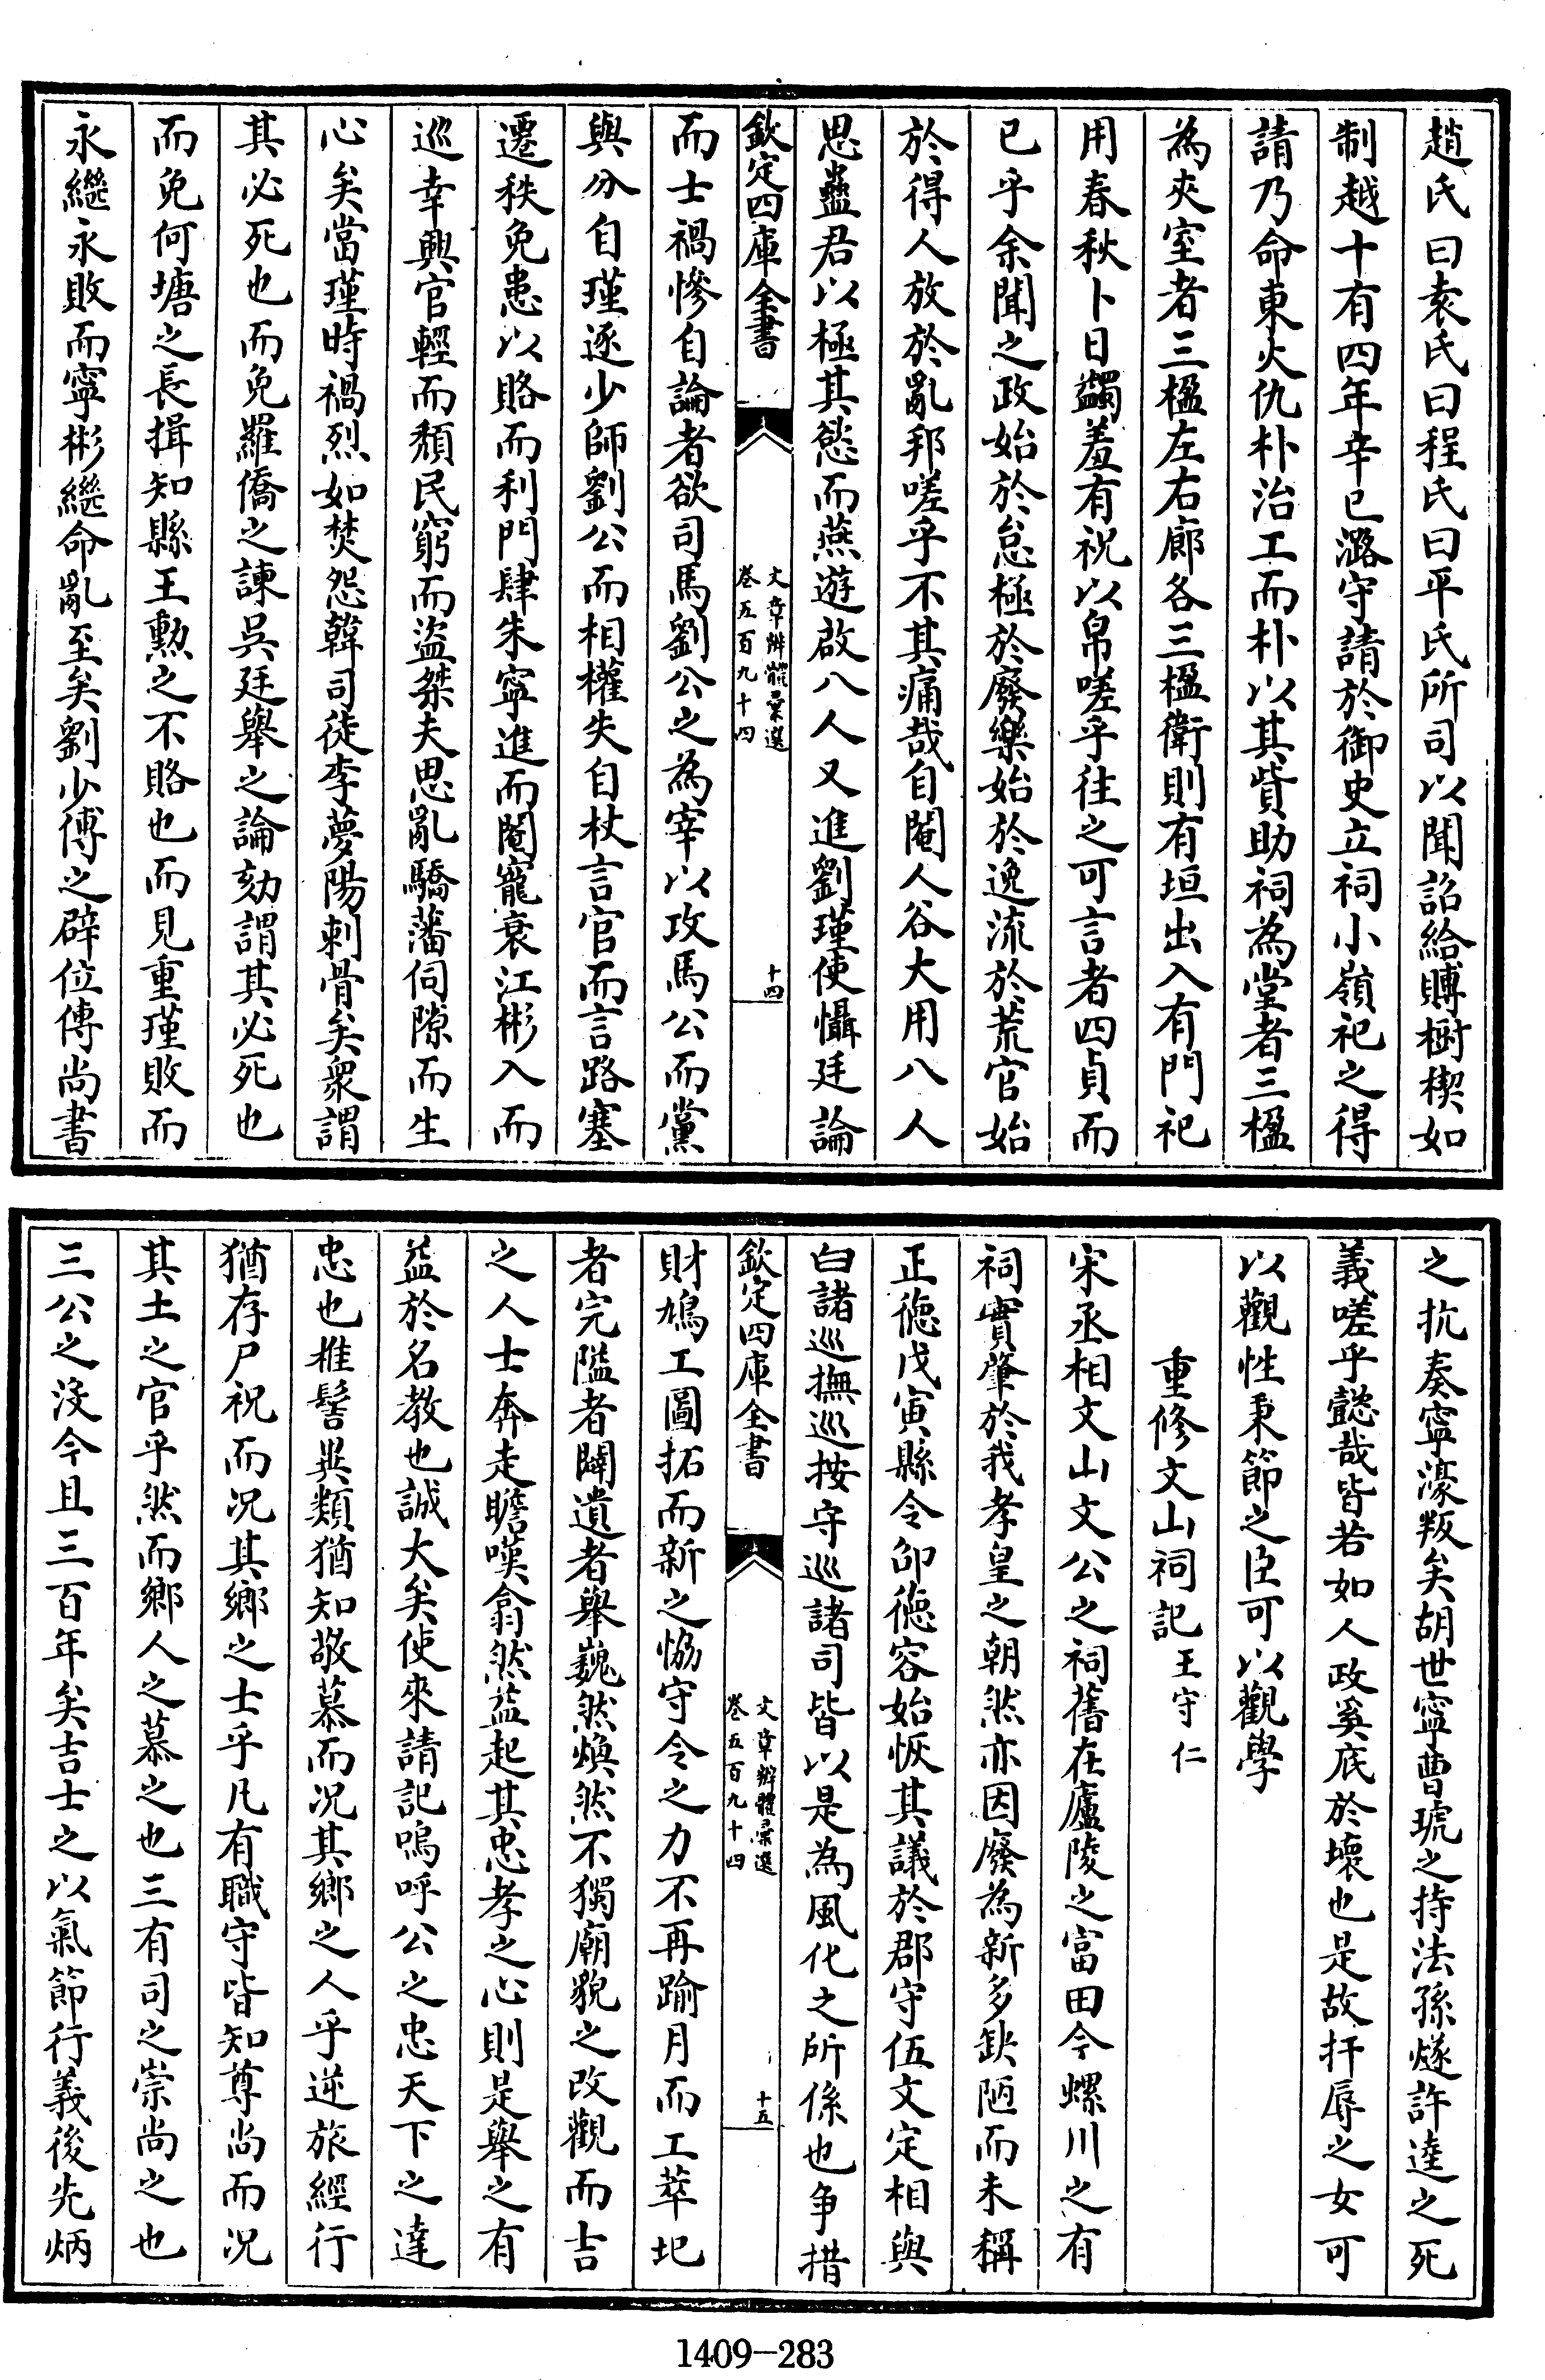 趙氏曰袁氏曰程氏曰平氏所司以聞詔給賻樹楔如
制越十有四年辛巳潞守請於御史立祠小嶺祀之得
請乃命東火仇朴治工而朴以其貲助祠為堂者三楹
為夾室者三楹左右廊各三楹衛則有垣出入有門祀
用春秋卜日蠲羞有祝以帛嗟乎往之可言者四貞而
已乎余聞之政始於怠極於廢樂始於逸流於荒官始
於得人放於亂邦嗟乎不其痛哉自閹人谷大用八人
思蠱君以極其慾而燕遊啟八人又進劉瑾使懾廷論
欽定四庫全書
文章辨體彙選
卷五百九十四
十四
而士禍慘自論者欲司馬劉公之為宰以攻馬公而黨
與分自瑾逐少師劉公而相權失自杖言官而言路塞
遷秩免患以賂而利門肆朱寧進而閹寵衰江彬入而
巡幸興官輕而頹民窮而盜桀夫思亂驕藩伺隙而生
心矣當瑾時禍烈如焚怨韓司徒李夢陽刺骨矣衆謂
其必死也而免羅僑之諫吳廷舉之論劾謂其必死也
而免何塘之長揖知縣王勲之不賂也而見重瑾敗而
永繼永敗而寧彬繼命亂至矣劉少傅之辟位傅尚書
之抗奏寧濠叛矣胡世寧曹琥之持法孫燧許逵之死
義嗟乎懿哉皆若如人政奚底於壞也是故扞辱之女可
以觀性秉節之臣可以觀學
重修文山祠記 王守仁
宋丞相文山文公之祠舊在廬陵之富田今螺川之有
祠實肇於我孝皇之朝然亦因廢為新多缺陋而未稱
正德戊寅縣令邵德容始恢其議於郡守伍文定相與
白諸巡撫巡按守巡諸司皆以是為風化之所係也争措
欽定四庫全書
文章辨體彙選
卷五百九十四
十五
財鳩工圖拓而新之恊守令之力不再踰月而工萃圮
者完隘者闢遺者舉巍然煥然不獨廟貌之改觀而吉
之人士奔走瞻嘆翕然益起其忠孝之心則是舉之有
益於名教也誠大矣使來請記嗚呼公之忠天下之達
忠也椎髻異類猶知敬慕而况其鄉之人乎逆旅經行
猶存尸祝而况其鄉之士乎凡有職守皆知尊尚而况
其土之官乎然而鄉人之慕之也三有司之崇尚之也
三公之沒今且三百年矣吉士之以氣節行義後先炳
1409—283